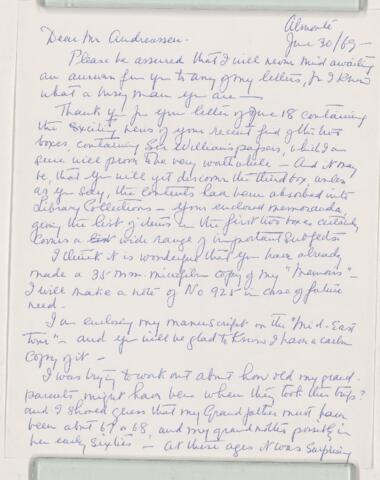 Almonte
June 30/69 -
Dear Mr Andreassen -
Please be assured that I will never mind awaiting
an answer from you to any of my letters, for I know
what a busy man you are -
Thank you for your letter of June 18 containing
the exciting news of your recent find of the two
boxes, containing Sir William's papers, which I am
sure will prove to be very worthwhile - And it may
be, that you will yet discover the third box, unless
as you say, the contents had been absorbed into
Library Collections - your enclosed memoranda,
giving the list of items in the first two boxes certainly
covers a wide range of important subjects -
I think it is wonderful that you have already
made a 35 mm. microfilm copy of my "Memoirs" -
I will make a note of No 925 in case of future
need -
I am enclosing my manuscript on the "Mid-East
Tour" - and you will be glad to know I have a carbon
copy of it -
I was trying to work out about how old my grand-
parents might have been when they took this trip?
and I should guess that my Grandfather must have
been about 67 or 68, and my grandmother possibly in
her early sixties - At these ages it was surprising